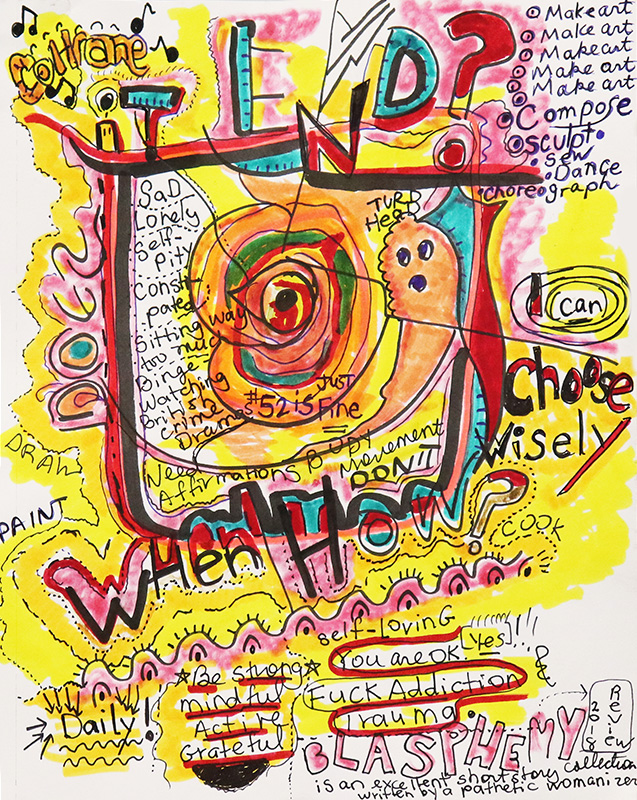 Coltrane
IT END?
Make art
Make art
Make art
Make art
Make art
Compose
Sculpt
Sew
Dance
Choreograph
DOES
Sad
Lonely
Self-
Pity
Const-
pated
Sitting way
too much
Binge
Watching
British
crime
Dramas
TURD
HEAD
I can
#52 is JUST
Fine
Choose
Wisely
Need
Affirmations
Movement
DON'T
DRAW
PAINT
WHen HOW?
COOK
Self-Loving
You are OK. Yes!
Fuck Addiction &
Trauma.
Daily!
Be strong
mindful
Active
Grateful
2018
Review
BLASPHEMY
is an excellent short story collection
written by a pathetic womanizer